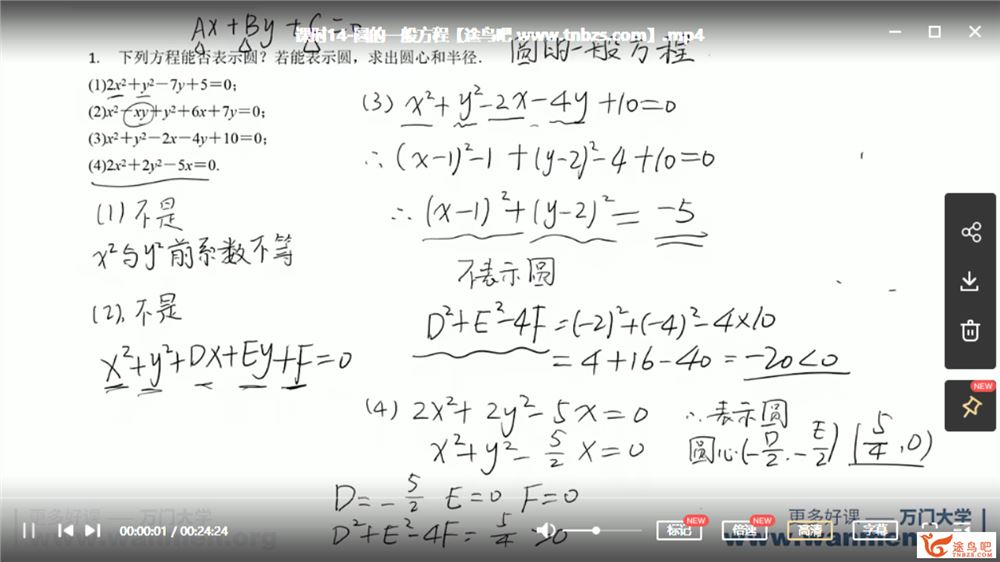 Ax+By+C=0
课时14-圆的一般方程【途鸟吧 www.tnbzs.com】.mp4
圆的一般方程
1. 下列方程能否表示圆？若能表示圆，求出圆心和半径.
(1)2x²+y²−7y+5=0;
(2)x²−xy+y²+6x+7y=0;
(3)x²+y²−2x−4y+10=0;
(4)2x²+2y²−5x=0.
(1) 不是
x²与y²前系数不等
(2), 不是
x²+y²+Dx+Ey+F=0
(3) x²+y²-2x-4y+10=0
∴(x-1)²-1+(y-2)²-4+10=0
∴(x-1)²+(y-2)²=-5
不表示圆
D²+E²-4F=(-2)²+(-4)²-4×10
=4+16-40=-20<0
(4) 2x²+2y²-5x=0 ∴表示圆
x²+y²-5/2 x=0 圆心(-D/2,-E/2) (5/4,0)
D=-5/2 E=0 F=0
D²+E²-4F=5/4>0
NEW
更多好课——万门大学
更多好课——万门大学
00:00:01 / 00:24:24
标记 NEW
倍速 NEW
高清
字幕 NEW
途鸟吧
TNBZS.COM